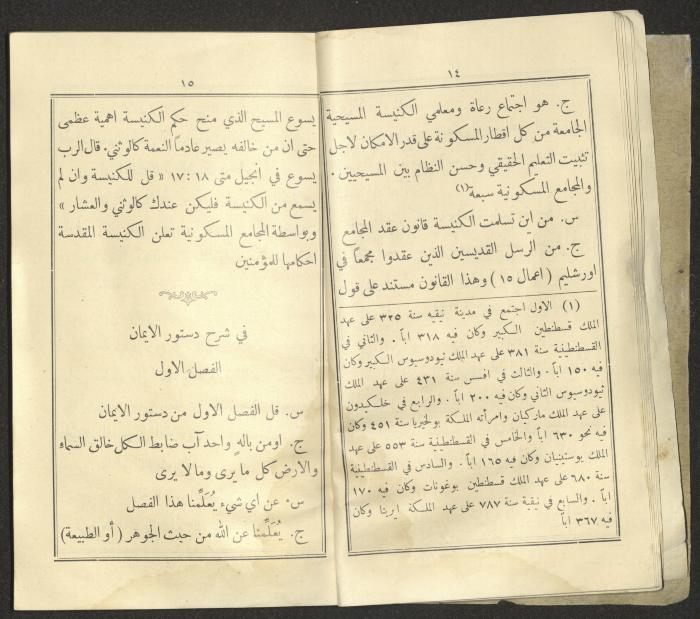 ١٤
ج. هو اجتماع رعاة ومعلمي الكنيسة المسيحية
الجامعة من كل اقطار المسكونة على قدر الامكان لاجل
تثبيت التعليم الحقيقي وحسن النظام بين المسيحيين .
والمجامع المسكونية سبعة (١)
س. من اين تسلمت الكنيسة قانون عقد المجامع
ج. من الرسل القديسين الذين عقدوا مجمعاً في
اورشليم ( اعمال ١٥ ) وهذا القانون مستند على قول
(١) الاول اجتمع في مدينة نيقيه سنة ٣٢٥ على عهد
الملك قسطنطين الكبير وكان فيه ٣١٨ اباً . والثاني في
القسطنطينية سنة ٣٨١ على عهد الملك ثيودوسيوس الكبير وكان
فيه ١٥٠ اباً . والثالث في افسس سنة ٤٣١ على عهد الملك
ثيودوسيوس الثاني وكان فيه ٢٠٠ اباً . والرابع في خلكيدون
على عهد الملك ماركيان وامرأته الملكة بولخيريا سنة ٤٥١ وكان
فيه نحو ٦٣٠ اباً والخامس في القسطنطينية سنة ٥٥٣ على عهد
الملك يوستينيان وكان فيه ١٦٥ اباً . والسادس في القسطنطينية
سنة ٦٨٠ على عهد الملك قسطنطين بوغونات وكان فيه ١٧٠
اباً . والسابع في نيقية سنة ٧٨٧ على عهد الملكة ايرينا وكان
فيه ٣٦٧ اباً
١٥
يسوع المسيح الذي منح حكم الكنيسة اهمية عظمى
حتى ان من خالفه يصير عادماً النعمة كالوثني. قال الرب
يسوع في انجيل متى ١٨ : ١٧ « قل للكنيسة وان لم
يسمع من الكنيسة فليكن عندك كالوثني والعشار »
وبواسطة المجامع المسكونية تعلن الكنيسة المقدسة
احكامها للمؤمنين
في شرح دستور الايمان
الفصل الاول
س. قل الفصل الاول من دستور الايمان
ج. اومن بالهٍ واحد آب ضابط الكل خالق السماء
والارض كل ما يرى وما لا يرى
س. عن اي شيء يُعَلِّمنا هذا الفصل
ج. يُعَلِّمنا عن الله من حيث الجوهر ( أو الطبيعة )